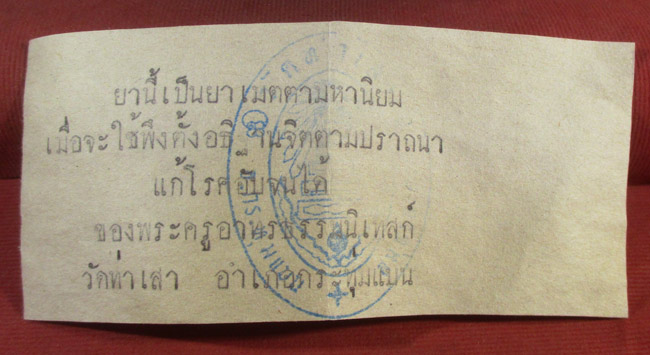 ยานี้เป็นยาเมตตามหานิยม
เมื่อจะใช้พึงตั้งอธิ านจิตตามปราถนา
แก้โรคอับจนได้
ของพระครูอาทรธรรมนิเทสก์
วัดท่าเสา อำเภอกระทุ่มแบน